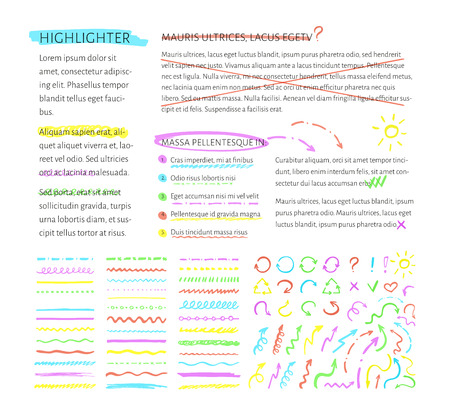 HIGHLIGHTER
Lorem ipsum dolor sit
amet, consectetur adipisc-
ing elit. Phasellus tempor
blandit tellus eget fauci-
bus.
Aliquam sapien erat, ali-
quet aliquet viverra et, lao-
reet vel odio. Sed ultricies
orci ac lacinia malesuada.
Sed porta, erat sit amet
sollicitudin gravida, turpis
urna lobortis diam, et sus-
cipit tellus tortor at risus.
MAURIS ULTRICES, LACUS EGETV?
Mauris ultrices, lacus eget luctus blandit, ipsum purus pharetra odio, sed hendrerit
velit sapien nec justo. Vivamus aliquam ante a lacus tincidunt tempus. Pellentesque
nec est ligula. Nulla convallis, mi nec consectetur hendrerit, tellus massa eleifend metus,
nec lacinia quam enim non metus. Sed ac orci ut enim efficitur pharetra nec quis
libero. Sed eu mattis massa. Nulla facilisi. Aenean vel diam fringilla ligula efficitur sus-
cipit et id justo. Suspendisse a facilisis erat.
MASSA PELLENTESQUE IN
1 Cras imperdiet, mi at finibus
2 Odio risus lobortis nisi
3 Eget accumsan nisi mi vel velit
4 Pellentesque id gravida magna
5 Duis tincidunt massa risus
Curabitur aliquam, orci sit amet tempor tinci-
dunt, libero enim interdum felis, sit amet con-
sectetur dui lacus accumsan eros
Mauris ultrices, lacus eget luctus blandit, ipsum
purus pharetra odio. Mauris ultrices, lacus eget
luctus blandit, ipsum purus pharetra odio
? ! !